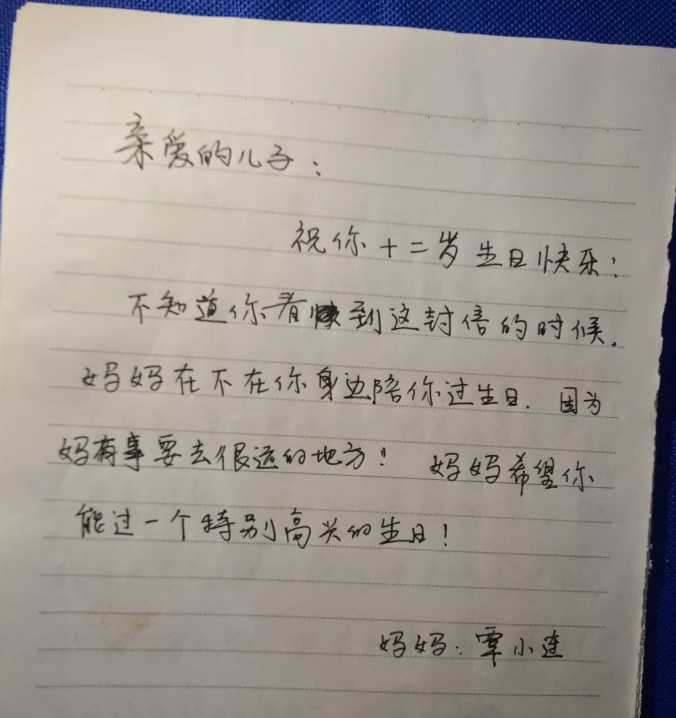 亲爱的儿子：
祝你十二岁生日快乐！
不知道你看到这封信的时候，
妈妈在不在你身边陪你过生日，因为
妈有事要去很远的地方！妈妈希望你
能过一个特别高兴的生日！
妈妈：覃小连